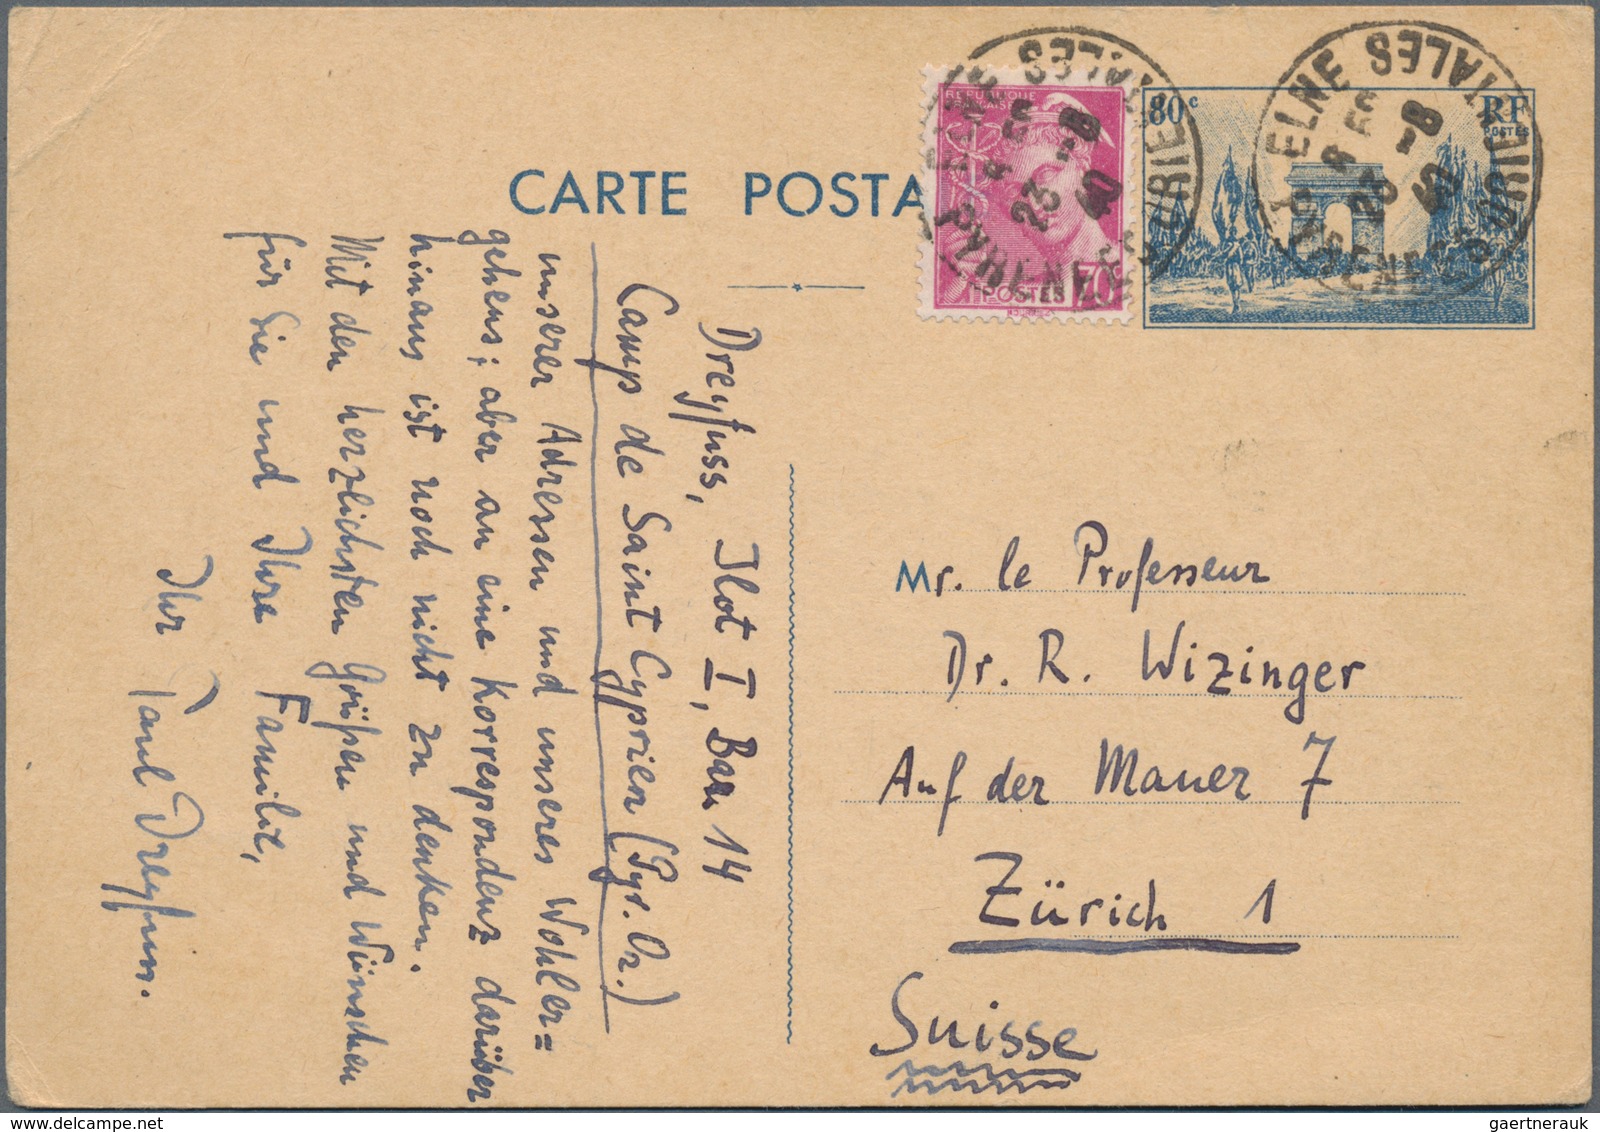 CARTE POSTA
RÉPUBLIQUE
FRANÇAISE
POSTES 70c
80c
RF
POSTES
ELNE
23 -8
40
ELNE
23 -8
40
Dreyfuss, Ilot I, Bar. 14
Camp de Saint Cyprien (Pyr. Or.)
unserer Adressen und unseres Wohler=
gehens; aber an eine Korrespondenz darüber
hinaus ist noch nicht zu denken.
Mit den herzlichsten Grüßen und Wünschen
für Sie und Ihre Familie,
Ihr Paul Dreyfuss.
Mr. le Professeur
Dr. R. Wizinger
Auf der Mauer 7
Zürich 1
Suisse
gaertnerauk